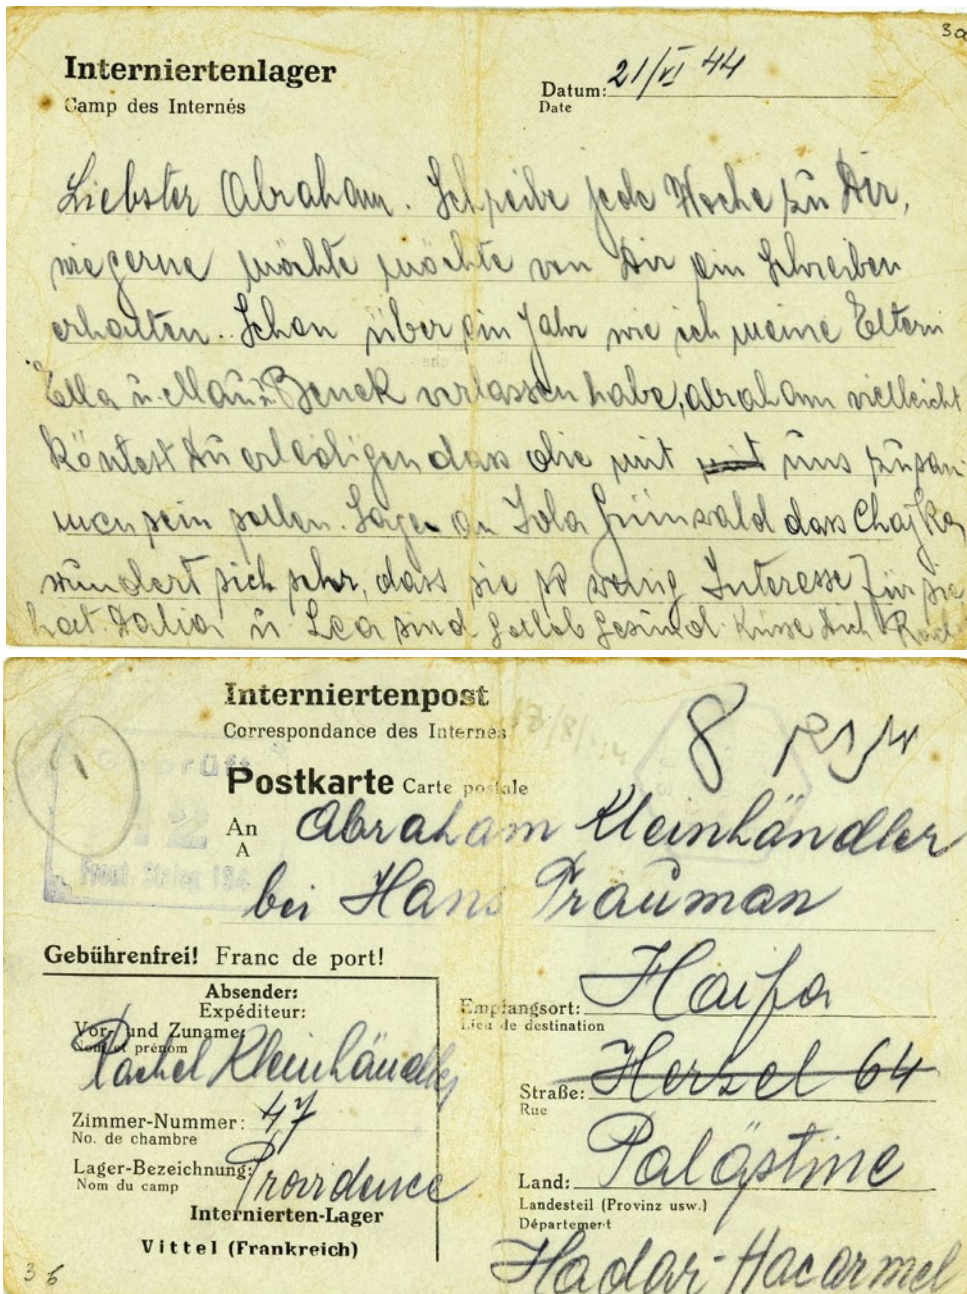 3a
Interniertenlager
Camp des Internés
Datum: 21/VI 44
Date
Liebster Abraham. Schreibe jede Woche zu Dir,
wie gerne möchte möchte von Dir ein Schreiben
erhalten. Schon über ein Jahr wie ich meine Eltern
Ella u. Benek verlassen habe, abraham vielleicht
köntest Du erledigen dass die mit mit uns zusam
men sein sollen. Sage an Lola Grünwald dass Chajka
wundert sich sehr, dass sie so wenig Interesse für sie
hat. Dalia u. Lea sind gotlob gesund. Küsse Dich
Interniertenpost
Correspondance des Internés
Postkarte Carte postale
8
Geprüft
An Abraham Kleinhändler
A
bei Hans Trauman
Gebührenfrei! Franc de port!
Absender:
Expéditeur:
Vor- und Zuname:
Nom et prénom
Rachel Kleinhändler
Zimmer-Nummer: 47
No. de chambre
Lager-Bezeichnung: Providence
Nom du camp
Internierten-Lager
Vittel (Frankreich)
Empfangsort: Haifa
Lieu de destination
Straße: Herzel 64
Rue
Land: Palästine
Landesteil (Provinz usw.)
Département
Hadar-Hacarmel
36